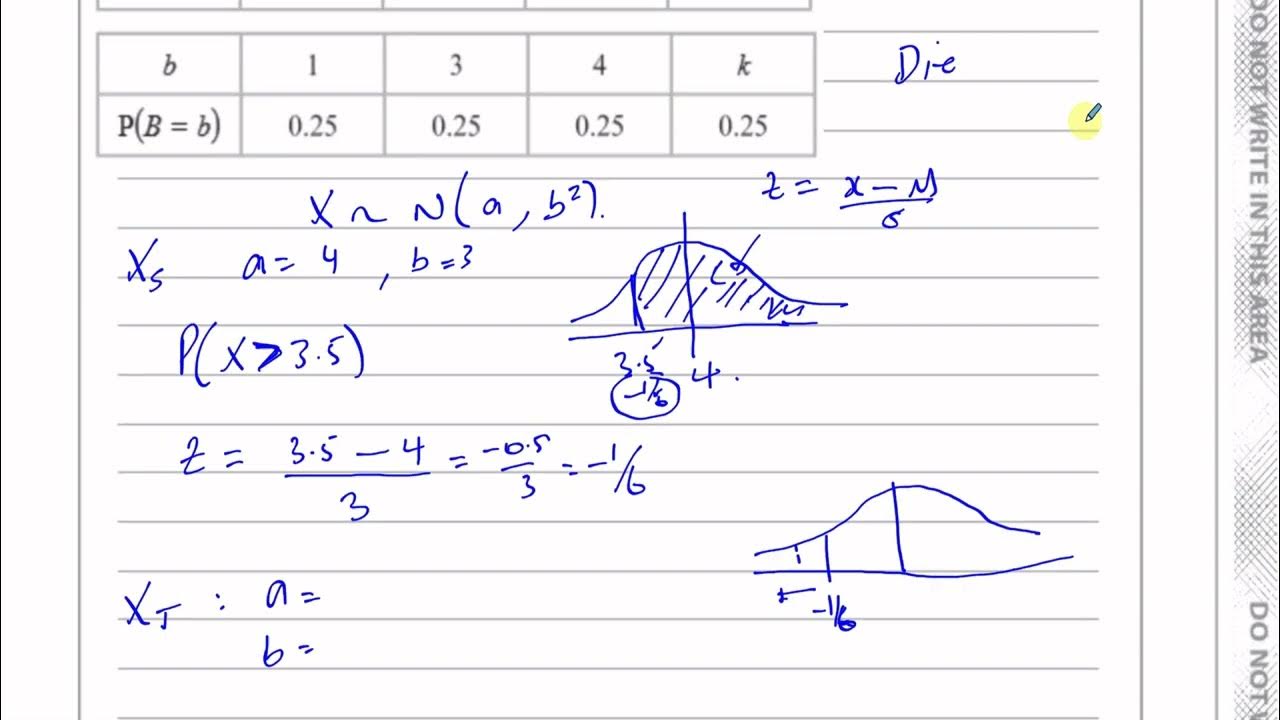 b 1 3 4 k
P(B = b) 0.25 0.25 0.25 0.25
Die
X ~ N(a, b²).
z = x - μ / σ
X_S a = 4 , b = 3
P(X > 3.5)
3.5 4.
-1/6
z = 3.5 - 4 / 3 = -0.5 / 3 = -1/6
-1/6
X_T : a =
b =
DO NOT WRITE IN THIS AREA
DO NOT